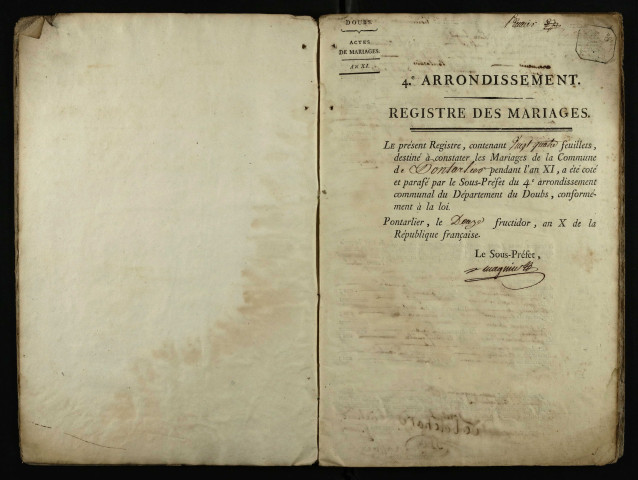 DOUBS.
ACTES
DE MARIAGES.
AN XI.
Premier
4.e ARRONDISSEMENT.
REGISTRE DES MARIAGES.
LE présent Registre, contenant Vingt quatre feuillets,
destiné à constater les Mariages de la Commune
de Pontarlier pendant l'an XI, a été coté
et parafé par le Sous-Préfet du 4e arrondissement
communal du Département du Doubs, conformé-
ment à la loi.
Pontarlier, le Douze fructidor, an X de la
République française.
Le Sous-Préfet,